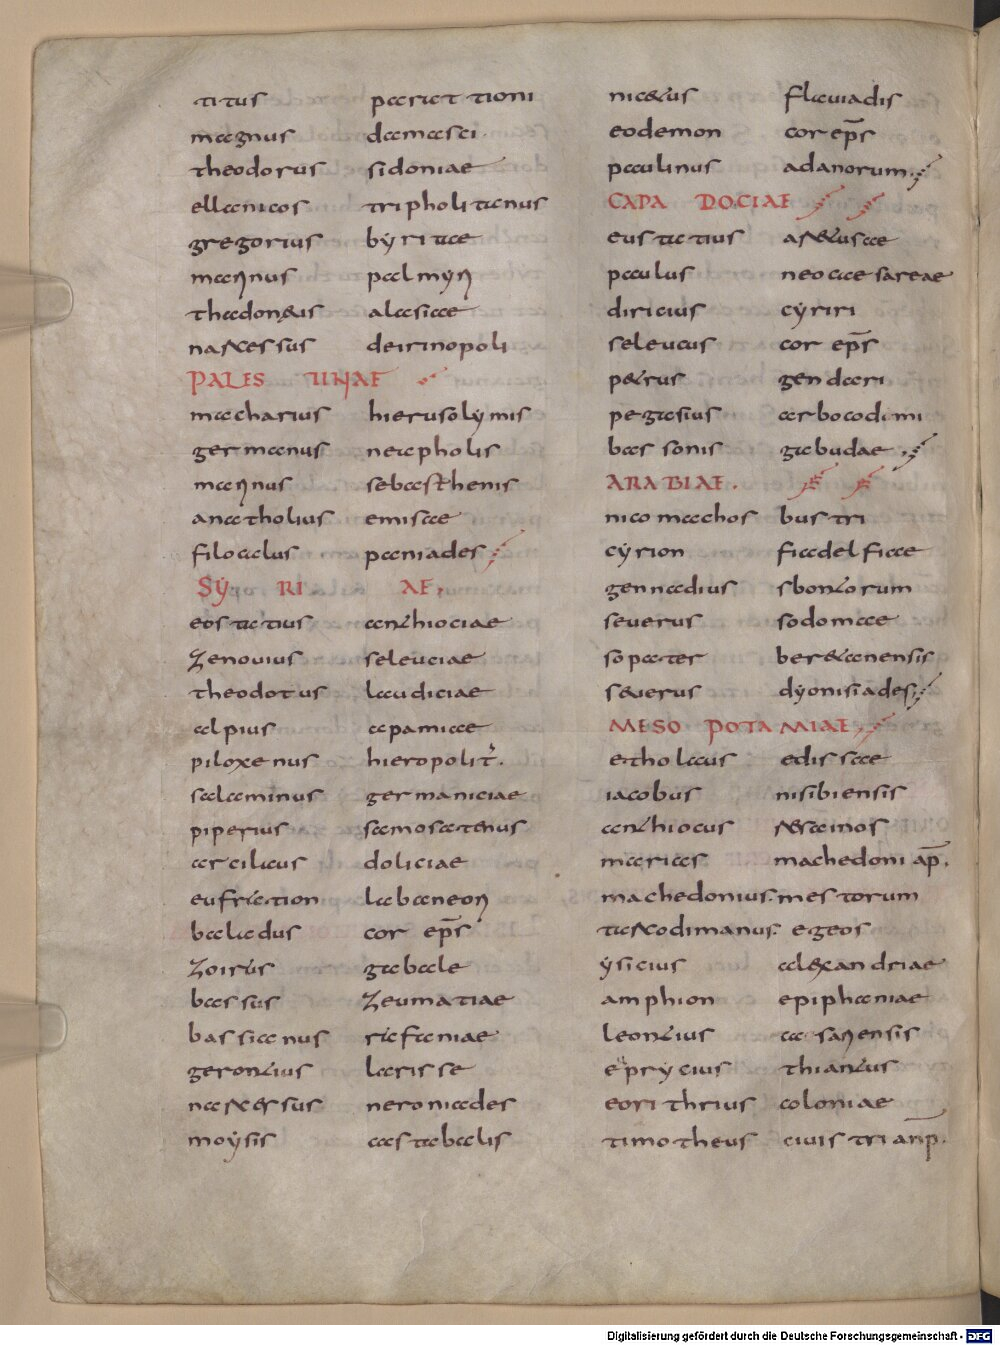 titus paraet tioni
magnus damasci
theodorus sidoniae
ellanicos tripholitanus
gregorius bẏritae
mannus palmyn
thadonetis alasiae
nancessus deirinopoli
PALES TINAE
macharius hierusolẏmis
germanus neapholis
mannus sebasthenis
anatholius emisae
filocalus paniades
SẎ RI AE.
eostatius anthiociae
zenovius seleuciae
theodotus laudiciae
alpius apamiae
piloxenus hieropolit.
salaminus germaniciae
piperius samosatenus
arcilaus doliciae
eufration labaneon
baladus cor ep̄s
zoirus gabale
bassus zeumatiae
bassianus rafaniae
gerontius larisse
nancessus neroniades
moẏsis astabalis
nicetus flauiadis
eodemon cor ep̄s
paulinus adanorum.
CAPA DOCIAE
eustatius
paulus neocaesareae
diricius cẏriri
seleucus cor ep̄s
petrus gendari
pegasius arbocodimi
bassonis gabudae.
ARABIAE.
nicomachos bustri
cẏrion fiadelfiae
gennadius sbontorum
seuerus sodomae
sopater beretanensis
seuerus dẏonisiades
MESO POTAMIAE.
etholaus edissae
iacobus nisibiensis
anthiocus
marias machedoni ap̄.
machedonius. mestorum
egeos
ẏsicius alexandriae
amphion epiphaniae
leontius
eprẏcius thiantus
eorithrius coloniae
timotheus ciuis tri
Digitalisierung gefördert durch die Deutsche Forschungsgemeinschaft - DFG